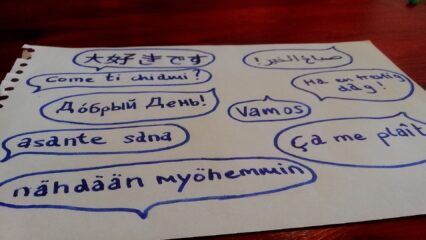 大好きです
صباح الخير!
Come ti chiami?
Ha en trevlig
dag!
До́брый День!
Vamos
asante sana
Ça me plaît
nähdään myöhemmin